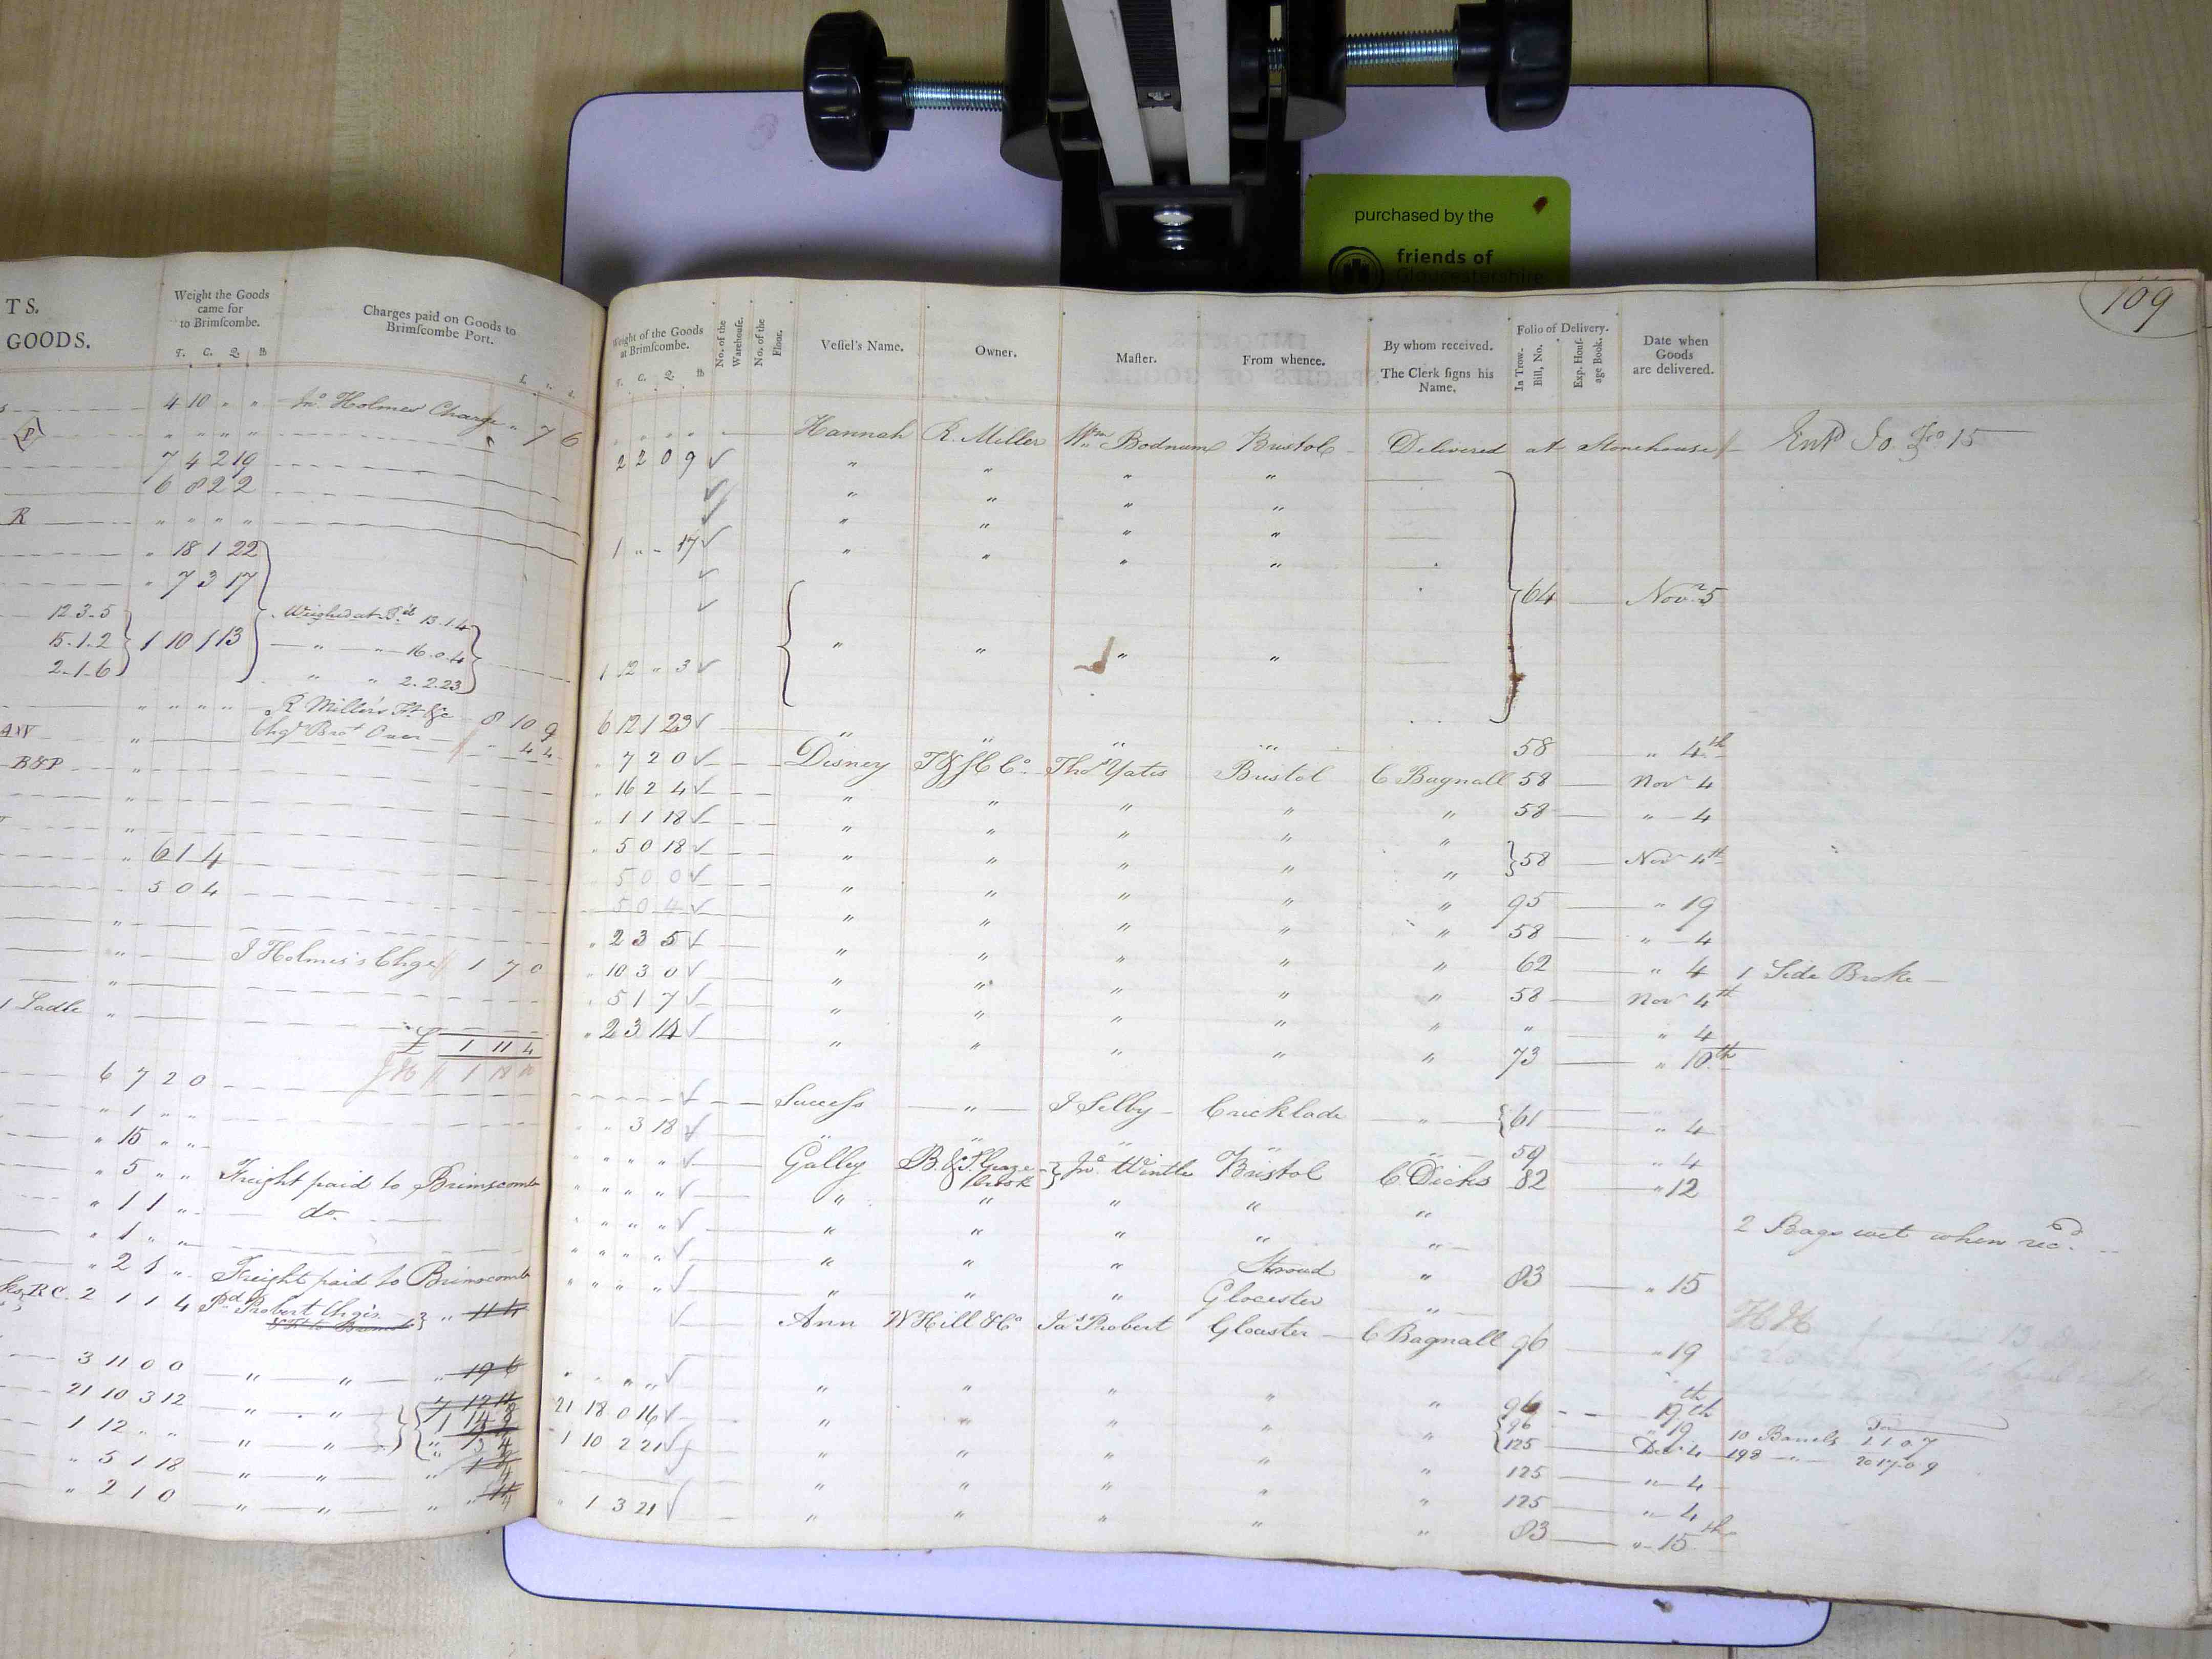 purchased by the
friends of
Gloucestershire
109
TS.
GOODS.
Weight the Goods
came for
to Brimscombe.
T. C. Q. lb
Charges paid on Goods to
Brimscombe Port.
4 10 " " Jno. Holmes Charge " 7 6
P " " " "
7 4 2 19
6 8 2 2
R " " " "
" 18 1 22
" 7 3 17
12.3.5 Weighed at 13.1.4
15.1.2 1 10 1 13 " " 16.0.4
2.1.6 " " 2.2.23
" " " " R Miller's Ft &c 8 10 9
AW " Chgs Brot Over " 4 4
B&P "
"
"
" 6 1 4
5 0 4
"
" J Holmes's Chge 1 7 0
"
1 Ladle "
£ 1 11 4
JH 1 18 10
6 7 2 0
" 1 " "
" 15 " "
" 5 " " Freight paid to Brimscomb
" 1 1 " do
" 1 " "
" 2 1 " Freight paid to Brimscomb
B C. 2 1 1 4 Pd Probert Chgs
3 11 0 0 " " " 19 6
21 10 3 12 " "
1 12 " " " "
" 5 1 18 " "
" 2 1 0 " "
Weight of the Goods
at Brimscombe.
T. C. Q. lb
No. of the Warehouse.
No. of the Floor.
Vessel's Name.
Owner.
Master.
From whence.
By whom received.
The Clerk signs his
Name.
Folio of Delivery.
In Trow. Bill, No.
Exp. House age Book.
Date when
Goods
are delivered.
" " " " Hannah R. Miller Wm Bodnum Bristol Delivered at Stonehouse Entd Jo. Fo 15
2 2 0 9 ✓ " " " "
✓ " " " "
✓ " " " "
1 " " 17 ✓ " " " "
✓
✓ 64 Novr 5
1 12 " 3 ✓ " " " "
6 12 1 23 ✓ " " " " 58 " 4th
" 7 2 0 ✓ Disney T&JC Co Thos Yates Bristol C Bagnall 58 Nov 4
" 16 2 4 ✓ " " " " " 58 " 4
" 1 1 18 ✓ " " " " "
" 5 0 18 ✓ " " " " " 58 Nov 4th
5 0 0 ✓ " " " " " 95 " 19
5 0 4 ✓ " " " " " 58 " 4
" 2 3 5 ✓ " " " " " 62 " 4 1 Side Broke
" 10 3 0 ✓ " " " " " 58 Nov 4th
" 5 1 7 ✓ " " " " " " " 4
" 2 3 14 ✓ " " " " " 73 " 10th
✓ Success " J Selby Cricklade " 61 " 4
" " 3 18 ✓ " " " " " 59 " 4
" " " " ✓ Galley B. & Jno Wintle Bristol C Dicks 82 " 12
" " " " ✓ " " " " "
" " " " ✓ " " " " " 2 Bags wet when recd.
" " " " ✓ " " " Stroud " 83 " 15
" " " " ✓ " " " Glocester "
✓ Ann W Hill & Co Jas Probert Glocester C Bagnall 96 " 19
HH
" " " " ✓ " " " " " 96 19th
21 18 0 16 ✓ " " " " " 96 " 19 10 Barrels 1 1 0 7
1 10 2 21 ✓ " " " " 125 Decr 4 198 " 20 17 0 9
" " " " " 125 " 4
125 " 4
" 1 3 21 ✓ " " " " " 83 " 15th